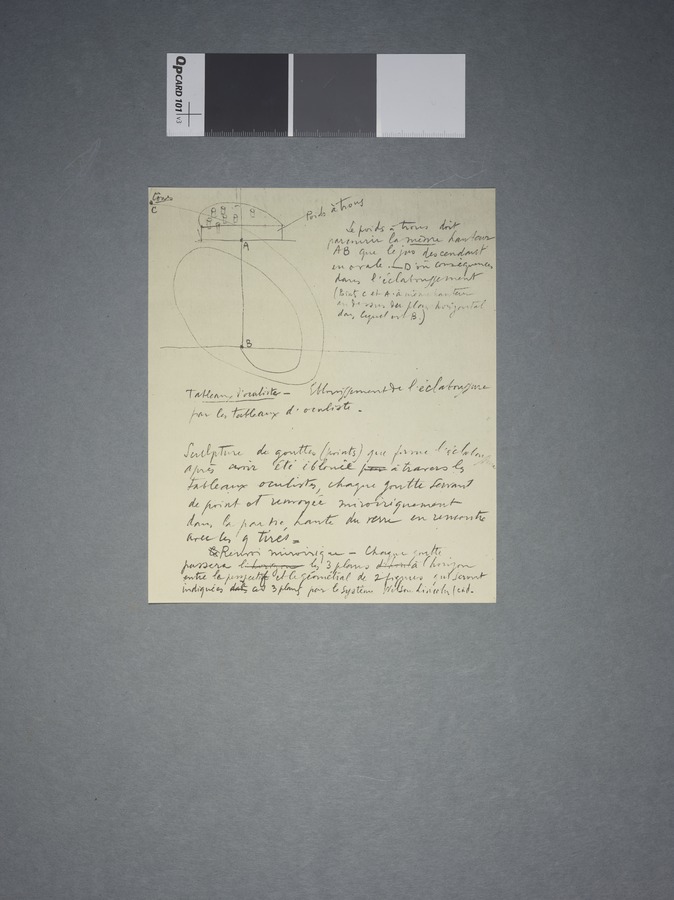 QPCARD 101 v3
C
Poids à trous
A
B
Le poids à trous doit
parcourir la même hauteur
AB que le jus descendant
en ovale. — D'où conséquences
dans l'éclaboussement
(But, C et A à même hauteur
au dessus du plan horizontal
dans lequel est B)
Tableaux d'oculiste — Eblouissement de l'éclaboussure
par les tableaux d'oculiste.
Sculpture de gouttes (points) que forme l'éclabous
après avoir été éblouie par à travers les
tableaux oculistes, chaque goutte servant
de point et renvoyée miroiriquement
dans la partie haute du verre en rencontre
avec les 9 tirés =
Renvoi miroirique — Chaque goutte
passera les 3 plans à l'horizon
entre la perspectif et le géométral de 2 figures qui seront
indiquées dans ces 3 plans par le système Wilson Lincoln (c.à.d.